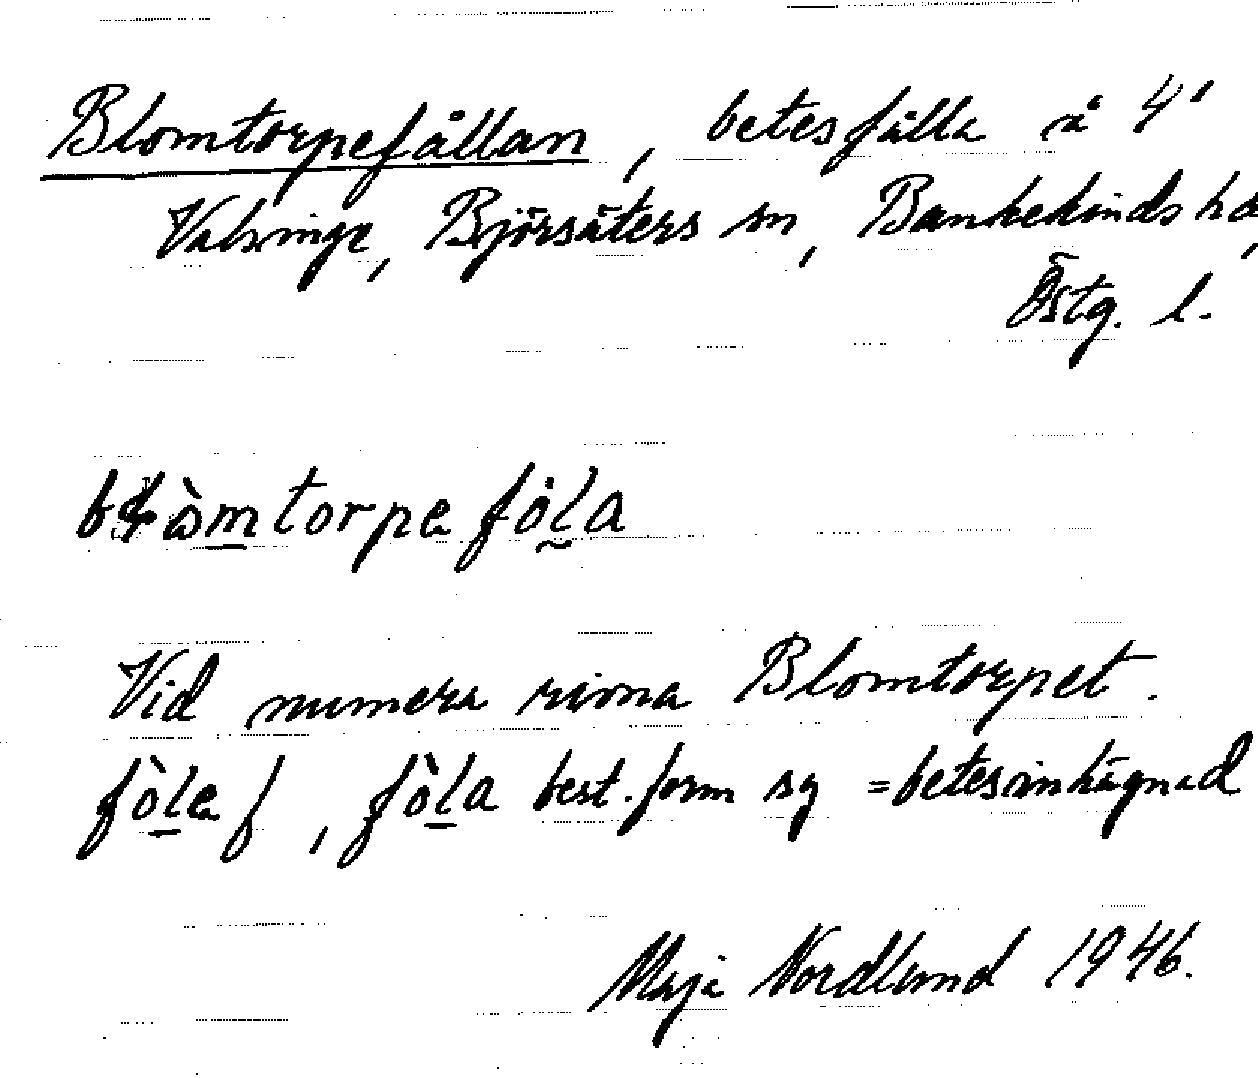 Blomtorpefållan, betesfålla å 4'
Valsinge, Björsäters sn, Bankekinds hd,
Östg. l.
blòmtorpefòla
Vid numera rivna Blomtorpet.
fòle f, fòla best. form sg = betesinhägnad
Maja Nordlund 1946.